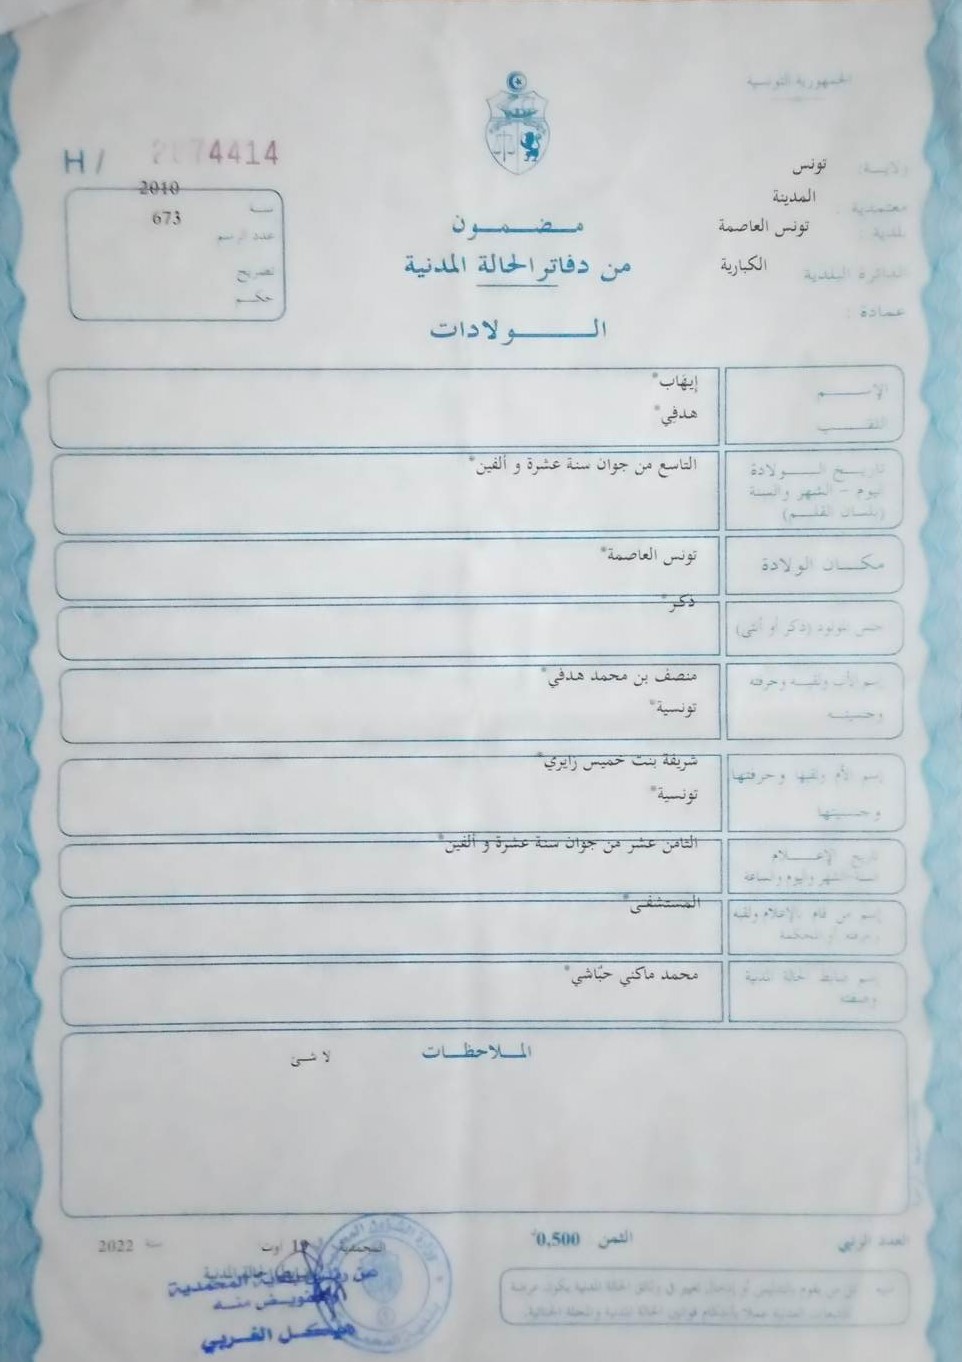 الجمهورية التونسية
H / 2074414
ولاية: تونس
معتمدية: المدينة
بلدية: تونس العاصمة
الدائرة البلدية الكبارية
عمادة:
سنة 2010
عدد الرسم 673
تصريح
حكم
مضمون
من دفاتر الحالة المدنية
الولادات
الإسم إيهاب*
اللقب هدفي*
تاريخ الولادة التاسع من جوان سنة عشرة و ألفين*
اليوم - الشهر والسنة
(بلسان القلم)
مكان الولادة تونس العاصمة*
جنس المولود (ذكر أو أنثى) ذكر*
إسم الأب ولقبه وحرفته منصف بن محمد هدفي*
وجنسيته تونسية*
إسم الأم ولقبها وحرفتها شريفة بنت خميس زايري*
وجنسيتها تونسية*
تاريخ الإعلام الثامن عشر من جوان سنة عشرة و ألفين*
السنة الشهر واليوم والساعة
إسم من قام بالإعلام ولقبه المستشفى*
وحرفته أو المحكمة
إسم ضابط حالة المدنية محمد ماكني حبّاشي*
وصفته
الملاحظات
لا شئ
العدد الرتبي
الثمن 0,500د
المحمدية 19 اوت سنة 2022
ضابط الحالة المدنية
عن رئيس بلدية المحمدية
وبتفويض منه
هيكل الغربي